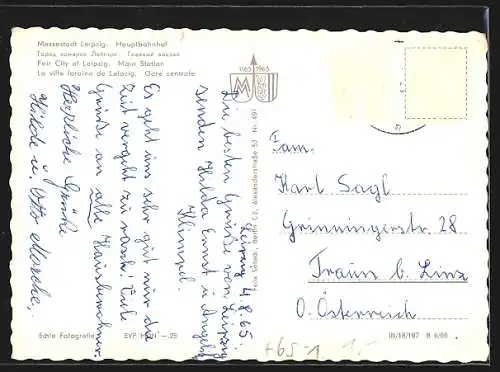 Messestadt Leipzig. Hauptbahnhof
Fair City of Leipzig. Main Station
La ville foraine de Leipzig. Gare centrale
1165 1965
Leipzig 4.8.65
Die besten Grüße von Leipzig
senden Hilda Ernst u. Angela
Klimpel.
Es geht uns sehr gut nur die
Zeit vergeht zu rasch! Viele
Grüße an alle Hausbewohner.
Herzliche Grüße
Hilde u. Otto
Felix Setecki, Berlin C 2, Alexanderstraße 53 Nr. 491
Fam.
Karl Sagl
Grinningerstr. 28
Traun b. Linz
O. Österreich
Echte Fotografie
EVP MDN -.25
III/18/197 B 6/65
+65-1 1.-